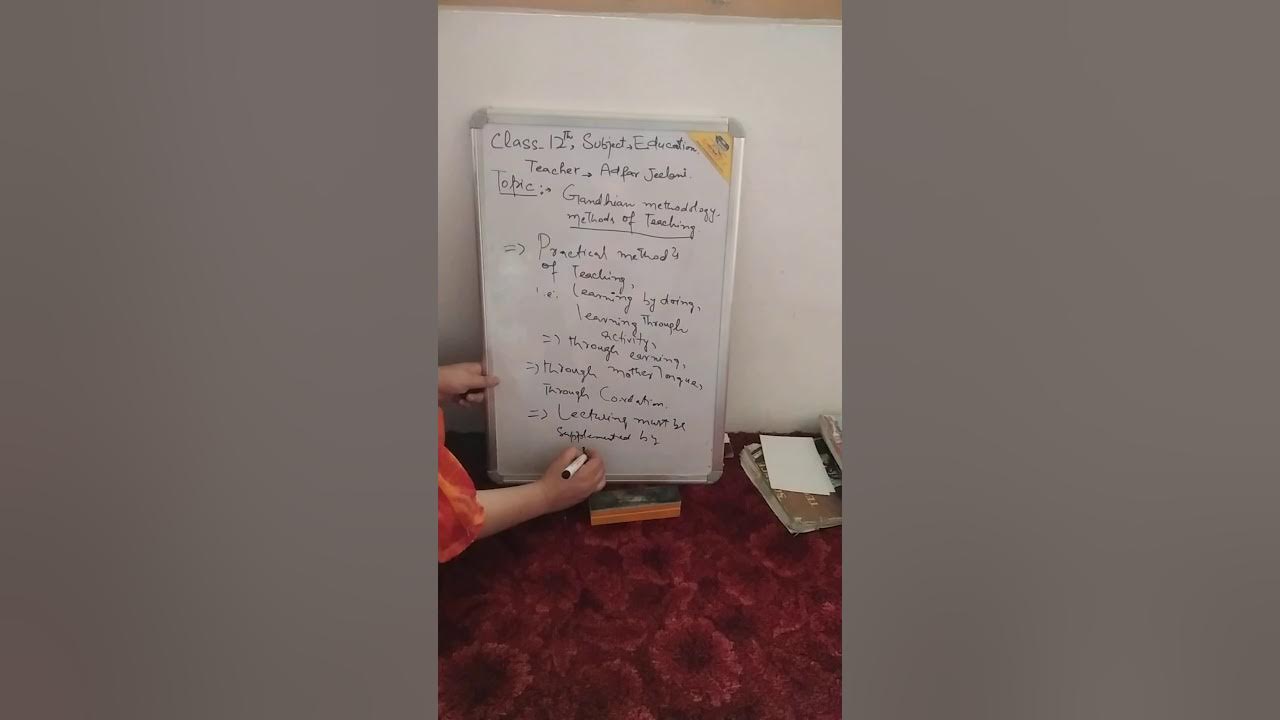 Class-12th, Subject→Education.
Teacher→ Adfar Jeelani.
Topic:→ Gandhian methodology-
methods of Teaching.
⇒ Practical methods
of Teaching,
i.e. learning by doing,
learning Through
activity,
⇒ through earning,
⇒ through mother Tongue,
Through
⇒ Lecturing must be
supplemented by